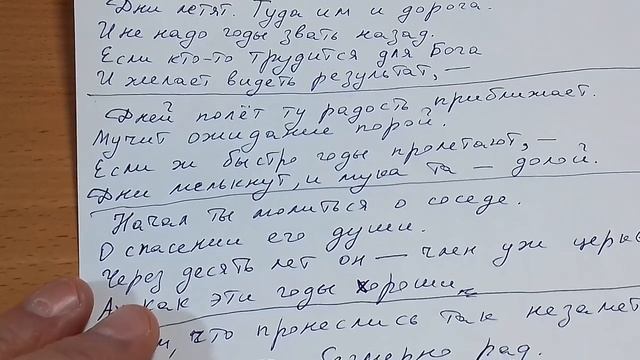 Дни летят. Туда им и дорога.
И не надо годы звать назад.
Если кто-то трудится для Бога
И желает видеть результат, —
Дней полёт ту радость приближает.
Мучит ожидание порой.
Если ж быстро годы пролетают, —
Дни мелькнут, и мука та — долой.
Начал ты молиться о соседе.
О спасении его души.
Через десять лет он — член уж церк
Ах как эти годы хороши
что пронеслись так незамет
рад.